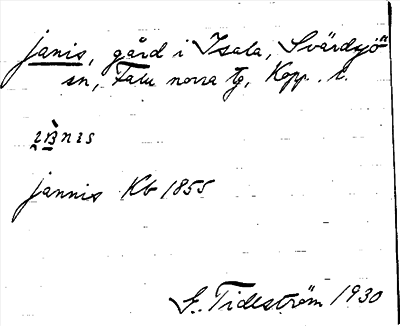 Janis, gård i Isala, Svärdsjö
sn, Falu norra tg, Kopp. l.
jannis Kb 1855
G. Tideström 1930